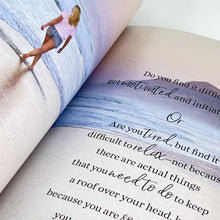 Do you find it diffi
got motivated and initiat
Or
Are you tired, but find it
difficult to relax not because
there are actual things
that you need to do to keep
a roof over your head, b
because you are
you